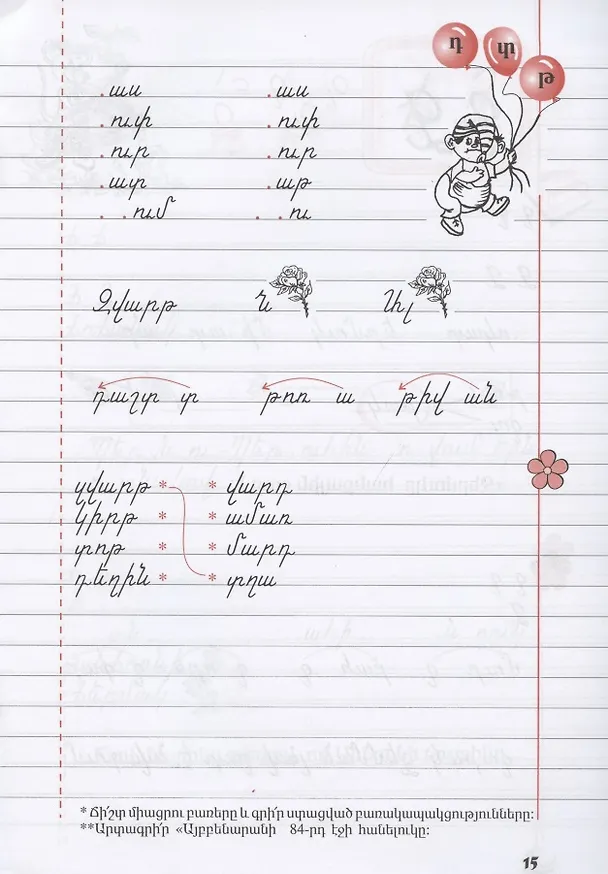 դ տ թ
.աս .աս
.ուփ .ուփ
.ուր .ուր
.ար .աթ
. .ում . .ու
Զվարթ Ն Աիլ
դաշտ տ թոռ ա թիվ ան
զվարթ * * վարդ
կիրթ * * ամառ
տոթ * * մարդ
դեղին * * տղա
* Ճի՛շտ միացրու բառերը և գրի՛ր ստացված բառակապակցությունները:
**Արտագրի՛ր «Այբբենարանի 84-րդ էջի հանելուկը:
15